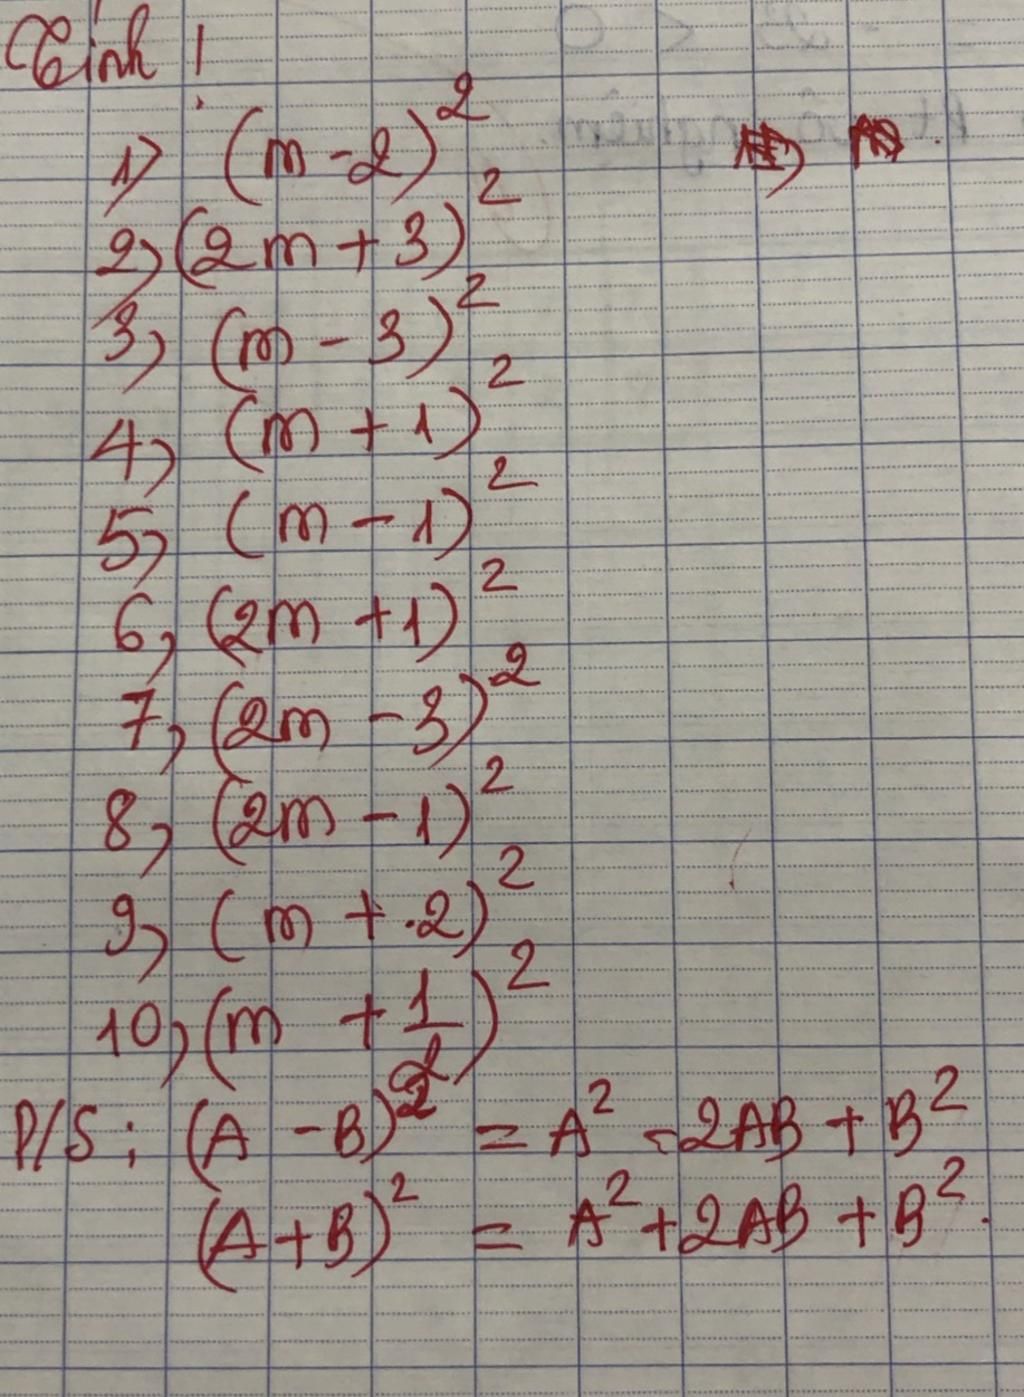 Tính !
1) (m - 2)²
2) (2m + 3)²
3) (m - 3)²
4) (m + 1)²
5) (m - 1)²
6) (2m + 1)²
7) (2m - 3)²
8) (2m - 1)²
9) (m + 2)²
10) (m + 1/2)²
P/S : (A - B)² = A² - 2AB + B²
(A + B)² = A² + 2AB + B².